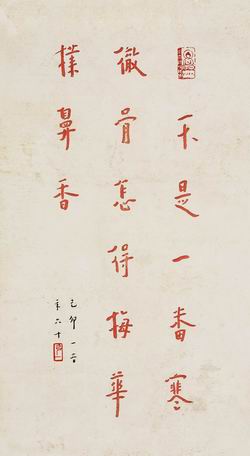 不是一番寒
徹骨怎得梅華
樸鼻香
己卯一音
年六十